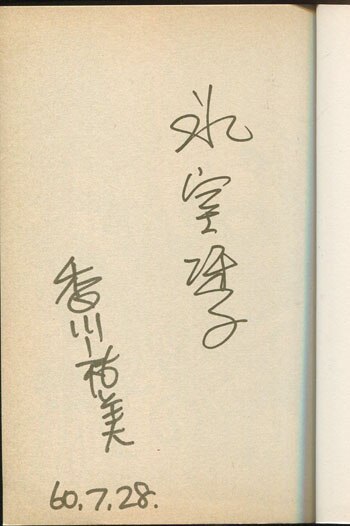 氷室冴子
香川祐美
60.7.28.